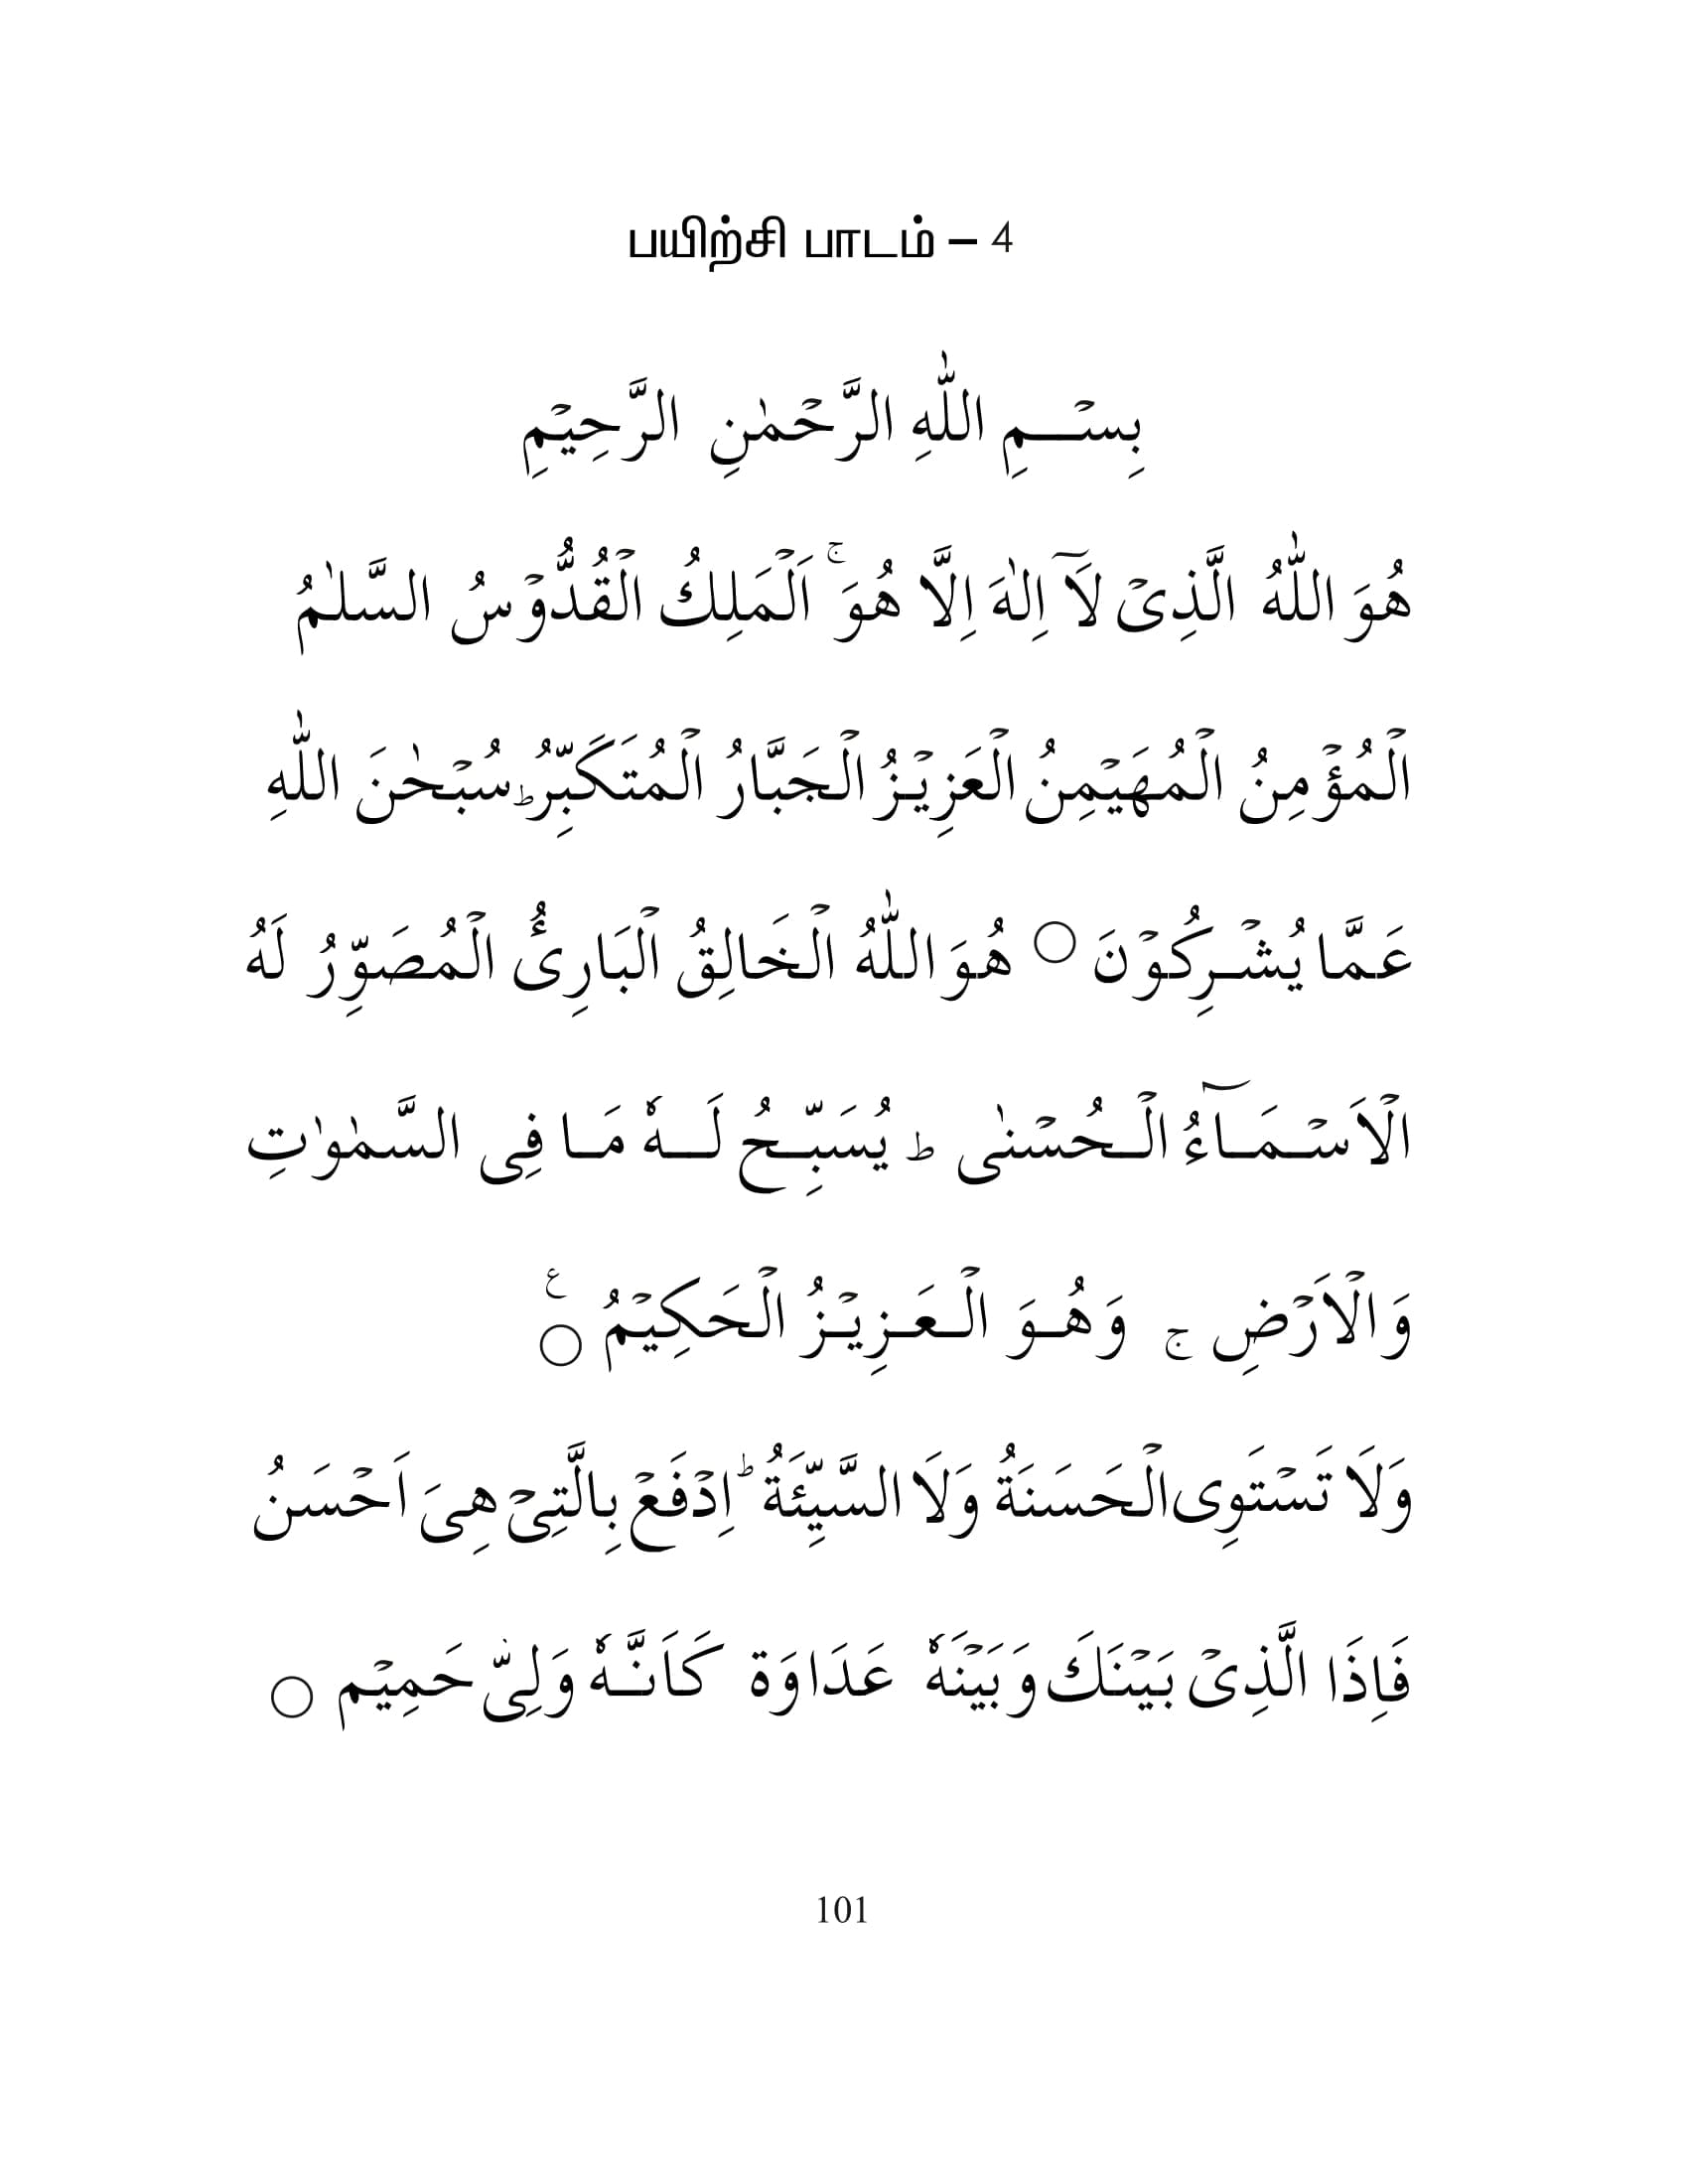 பயிற்சி பாடம் – 4
بِسْــمِ اللّٰهِ الرَّحْمٰنِ الرَّحِيْمِ
هُوَ اللّٰهُ الَّذِىْ لَآ اِلٰهَ اِلَّا هُوَ ۚ اَلْمَلِكُ الْقُدُّوْسُ السَّلٰمُ
الْمُؤْمِنُ الْمُهَيْمِنُ الْعَزِيْزُ الْجَبَّارُ الْمُتَكَبِّرُ ؕ سُبْحٰنَ اللّٰهِ
عَمَّا يُشْرِكُوْنَ ○ هُوَ اللّٰهُ الْخَالِقُ الْبَارِئُ الْمُصَوِّرُ لَهُ
الْاَسْمَآءُ الْحُسْنٰى ط يُسَبِّحُ لَهٗ مَا فِى السَّمٰوٰتِ
وَالْاَرْضِ ج وَهُوَ الْعَزِيْزُ الْحَكِيْمُ ○ ع
وَلَا تَسْتَوِى الْحَسَنَةُ وَلَا السَّيِّئَةُ ؕ اِدْفَعْ بِالَّتِىْ هِىَ اَحْسَنُ
فَاِذَا الَّذِىْ بَيْنَكَ وَبَيْنَهٗ عَدَاوَة كَاَنَّهٗ وَلِىّ حَمِيْم ○
101